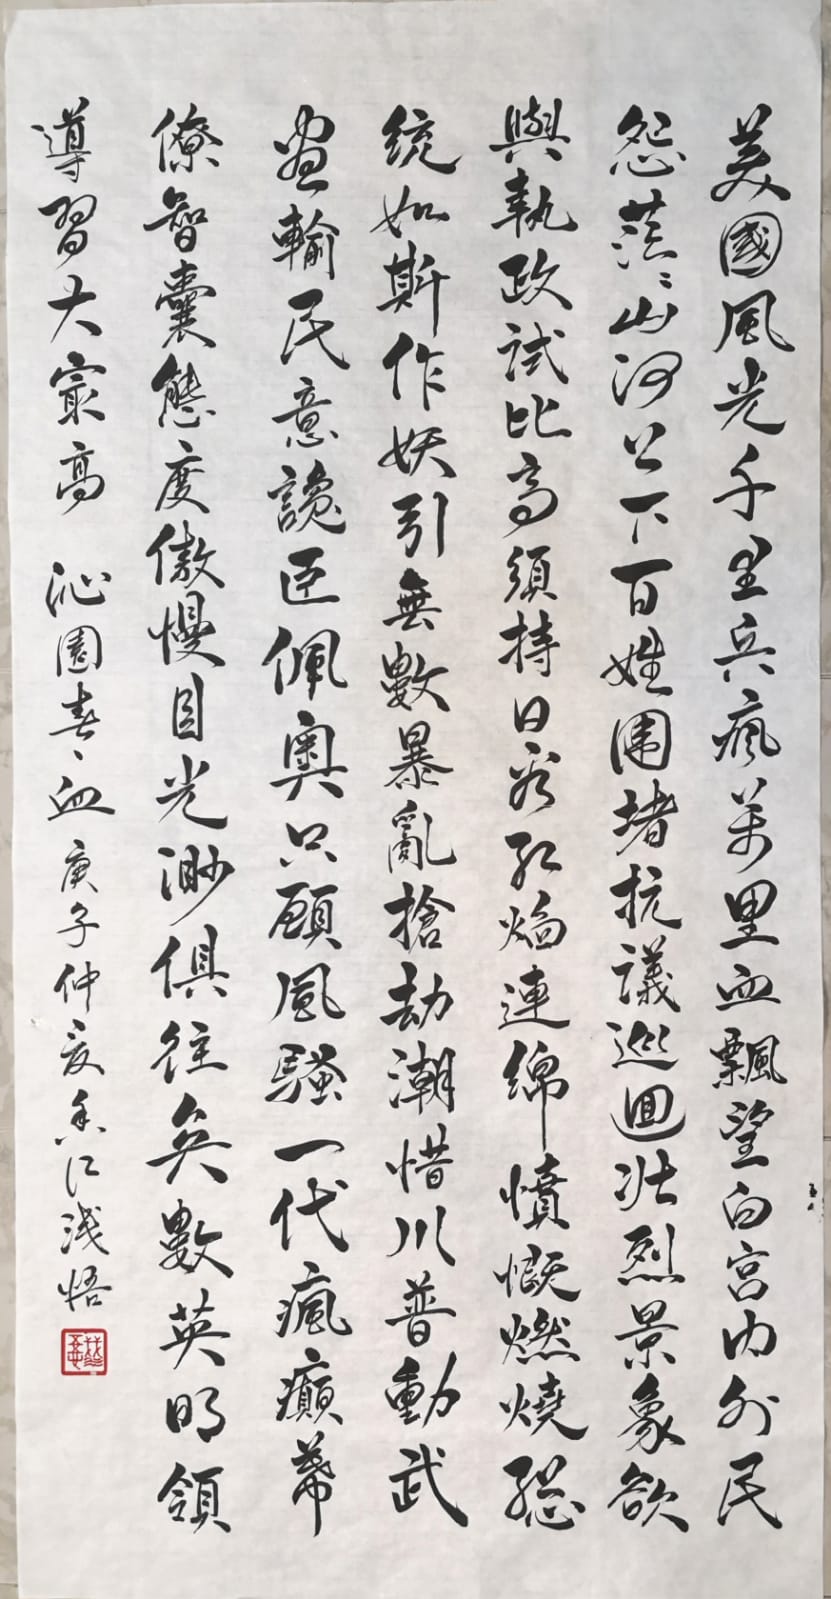 美國風光千里兵瘋萬里血飄望白宮内外民
怨茫〻山河上下百姓围堵抗議巡回壮烈景象欲
與執政試比高須持日看紅焰連綿憤慨燃燒總
統如斯作妖引無數暴亂搶劫潮惜川普動武
盡輸民意讒臣佩奥只顧風騷一代瘋癲幕
僚智囊態度傲慢目光渺俱往矣數英明領
導習大最高 沁園春、血 庚子仲夏香江淺悟